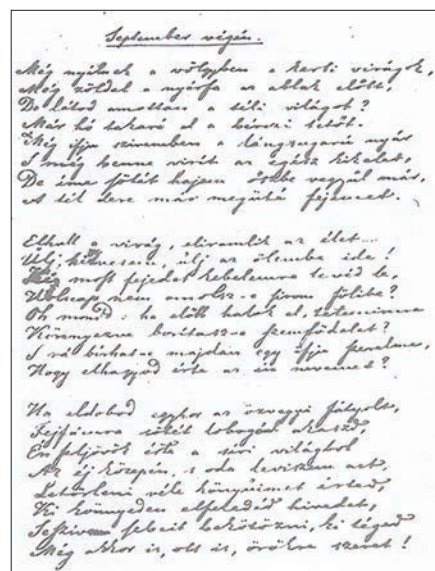 September végén.
Még nyílnak a völgyben a kerti virágok,
Még zöldel a nyárfa az ablak előtt,
De látod amottan a téli világot?
Már hó takará el a bérczi tetőt.
Még ifju szivemben a lángsugarú nyár
S még benne virít az egész kikelet,
De íme sötét hajam őszbe vegyűl már,
A tél dere már megüté fejemet.
Elhull a virág, eliramlik az élet....
Ülj, hitvesem, ülj az ölembe ide!
Ki most fejedet kebelemre tevéd le,
Holnap nem omolsz-e sirom fölibe?
Oh mondd: ha előbb halok el, tetemimre
Könnyezve borítasz-e szemfödelet?
S rá bírhat-e majdan egy ifju szerelme,
Hogy elhagyod érte az én nevemet?
Ha eldobod egykor az özvegyi fátyolt,
Fejfámra sötét lobogóul akaszd,
Én feljövök érte a síri világból
Az éj közepén, s oda leviszem azt,
Letörleni véle könyűimet érted,
Ki könnyeden elfeledéd hivedet,
S e szív sebeit bekötözni, ki téged
Még akkor is, ott is, örökre szeret!